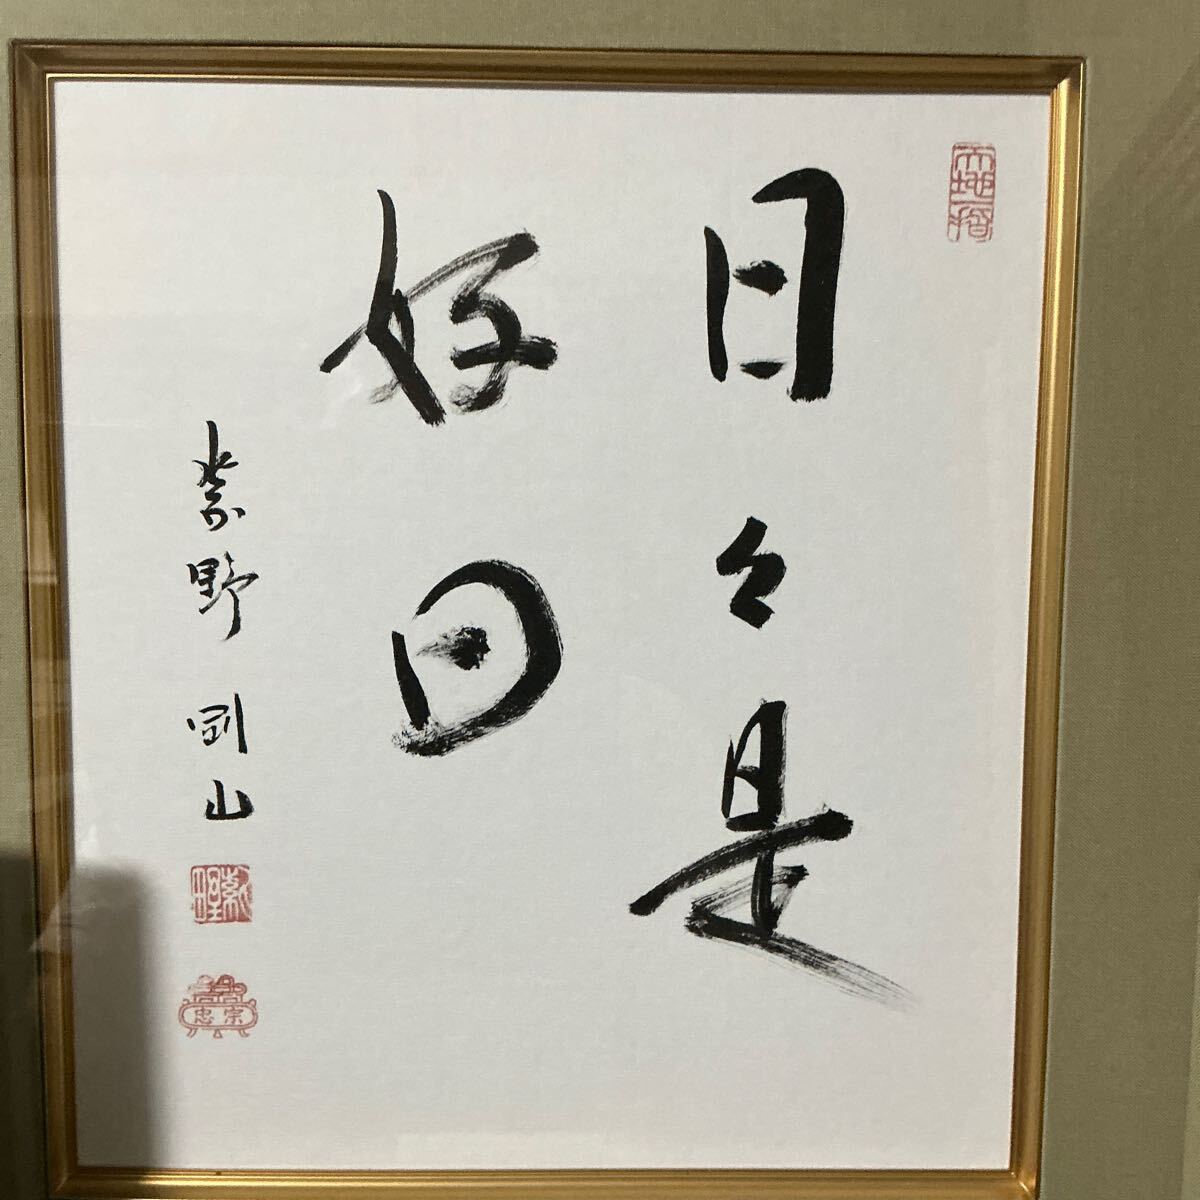 日々是
好日
紫野 剛山
宗忠